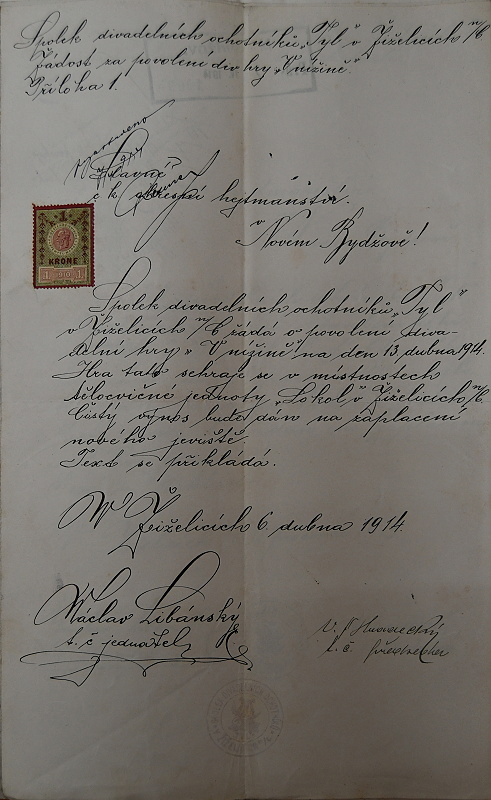 Spolek divadelních ochotníků „Tyl" v Žiželicích n/C
Žádost za povolení div. hry „V nížině".
Příloha 1.
Slavné
c k okresní hejtmanství.
v
Novém Bydžově!
1
KRONE
1 1910 1
Spolek divadelních ochotníků „Tyl"
v Žiželicích n/C žádá o povolení diva-
delní hry „V nížině" na den 13. dubna 1914.
Hra tato sehraje se v místnostech
tělocvičné jednoty „Sokol" v Žiželicích n/C.
Čistý výnos bude dán na zaplacení
nového jeviště.
Text se přikládá.
V Žiželicích 6. dubna 1914.
Václav Libánský
t. č. jednatel
V.
t. č. předseda